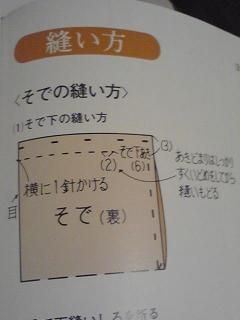 縫い方
〈そでの縫い方〉
(1)そで下の縫い方
そで下あき
(2)
(6)
(3)
あきどまりはしっかり
すくいどめをしてから
縫いもどる
横に1針かける
目
そで(裏)